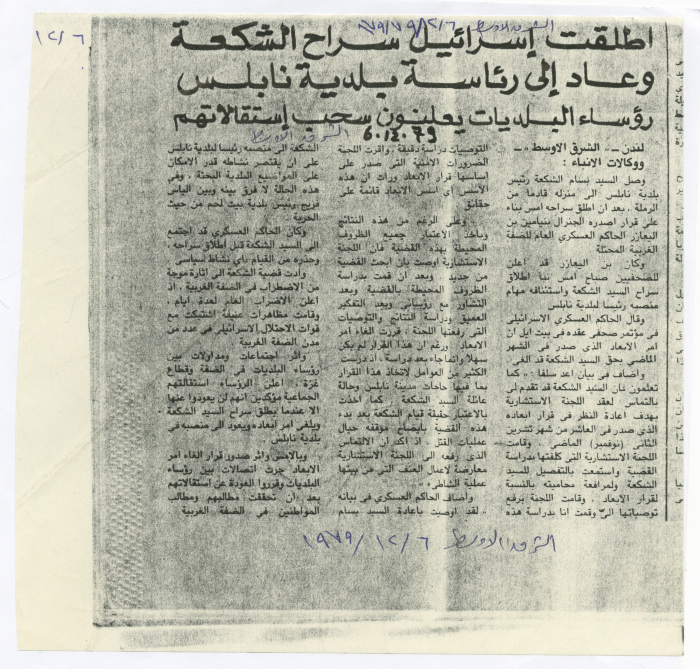 ١٢/٦
الشرق الاوسط ٧٩/١٢/٦
اطلقت إسرائيل سراح الشكعة
وعاد إلى رئاسة بلدية نابلس
رؤساء البلديات يعلنون سحب إستقالاتهم
الشرق الاوسط 6.12.79
لندن ـ «الشرق الاوسط» ـ
ووكالات الانباء :
وصل السيد بسام الشكعة رئيس
بلدية نابلس الى منزله قادما من
الرملة ، بعد ان اطلق سراحه امس بناء
على قرار اصدره الجنرال بنيامين بن
اليعازر الحاكم العسكري العام للضفة
الغربية المحتلة
وكان بن اليعازر قد اعلن
للصحفيين صباح امس نبا اطلاق
سراح السيد الشكعة واستئنافه مهام
منصبه رئيسا لبلدية نابلس
وقال الحاكم العسكري الاسرائيلي
في مؤتمر صحفي عقده في بيت ايل ان
امر الابعاد الذي صدر في الشهر
الماضي بحق السيد الشكعة قد الغي
واضاف في بيان اعد سلفا : « كما
تعلمون فان السيد الشكعة قد تقدم لي
بالتماس لعقد اللجنة الاستشارية
بهدف اعادة النظر في قرار ابعاده
الذي صدر في العاشر من شهر تشرين
الثاني (نوفمبر) الماضي ، وقامت
اللجنة الاستشارية التي كلفتها بدراسة
القضية واستمعت بالتفصيل للسيد
الشكعة ولمرافعة محاميته بالنسبة
لقرار الابعاد ، وقامت اللجنة برفع
توصياتها الي وقمت انا بدراسة هذه
التوصيات دراسة دقيقة ، واقرت اللجنة
الضرورات الامنية التي صدر على
اساسها قرار الابعاد ورات ان هذه
الاسس اي اسس الابعاد قائمة على
حقائق
« وعلى الرغم من هذه النتائج
وباخذ الاعتبار جميع الظروف
المحيطة بهذه القضية فان اللجنة
الاستشارية اوصت بان ابحث القضية
من جديد ، وبعد ان قمت بدراسة
الظروف المحيطة بالقضية وبعد
التشاور مع رؤسائي وبعد التفكير
العميق ودراسة النتائج والتوصيات
التي رفعتها اللجنة ، قررت الغاء امر
الابعاد ، ورغم ان هذا القرار لم يكن
سهلا واتماجاء بعد دراسة ، اذ درست
الكثير من العوامل لاتخاذ هذا القرار
بما فيها حاجات مدينة نابلس وحالة
عائلة السيد الشكعة ، كما اخذت
بالاعتبار حقيقة قيام الشكعة بعد بدء
هذه القضية بايضاح موقفه حيال
عمليات القتل ، اذ اكد ان الالتماس
الذي رفعه الى اللجنة الاستشارية
معارضة لاعمال العنف التي من بينها
عملية الشاطىء»
واضاف الحاكم العسكري في بيانه
« لقد اوصيت باعادة السيد بسام
الشكعة الى منصبه رئيسا لبلدية نابلس
على ان يقتصر نشاطه قدر الامكان
على المواضيع البلدية البحتة ، وفي
هذه الحالة لا فرق بينه وبين الياس
فريج رئيس بلدية بيت لحم من حيث
الحرية
وكان الحاكم العسكري قد اجتمع
الى السيد الشكعة قبل اطلاق سراحه ،
وحذره من القيام باي نشاط سياسي
وادت قضية الشكعة الى اثارة موجة
من الاضطراب في الضفة الغربية ، اذ
اعلن الاضراب العام لعدة ايام ،
وقامت مظاهرات عنيفة اشتبكت مع
قوات الاحتلال الاسرائيلي في عدد من
مدن الضفة الغربية
واثر اجتماعات ومداولات بين
رؤساء البلديات في الضفة وقطاع
غزة ، اعلن الرؤساء استقالتهم
الجماعية مؤكدين انهم لن يعودوا عنها
الا عندما يطلق سراح السيد الشكعة
ويلغى امر ابعاده ويعود الى منصبه في
بلدية نابلس
وبالامس واثر صدور قرار الغاء امر
الابعاد جرت اتصالات بين رؤساء
البلديات وقرروا العودة عن استقالاتهم
بعد ان تحققت مطالبهم ومطالب
المواطنين في الضفة الغربية
الشرق الاوسط ١٩٧٩/١٢/٦